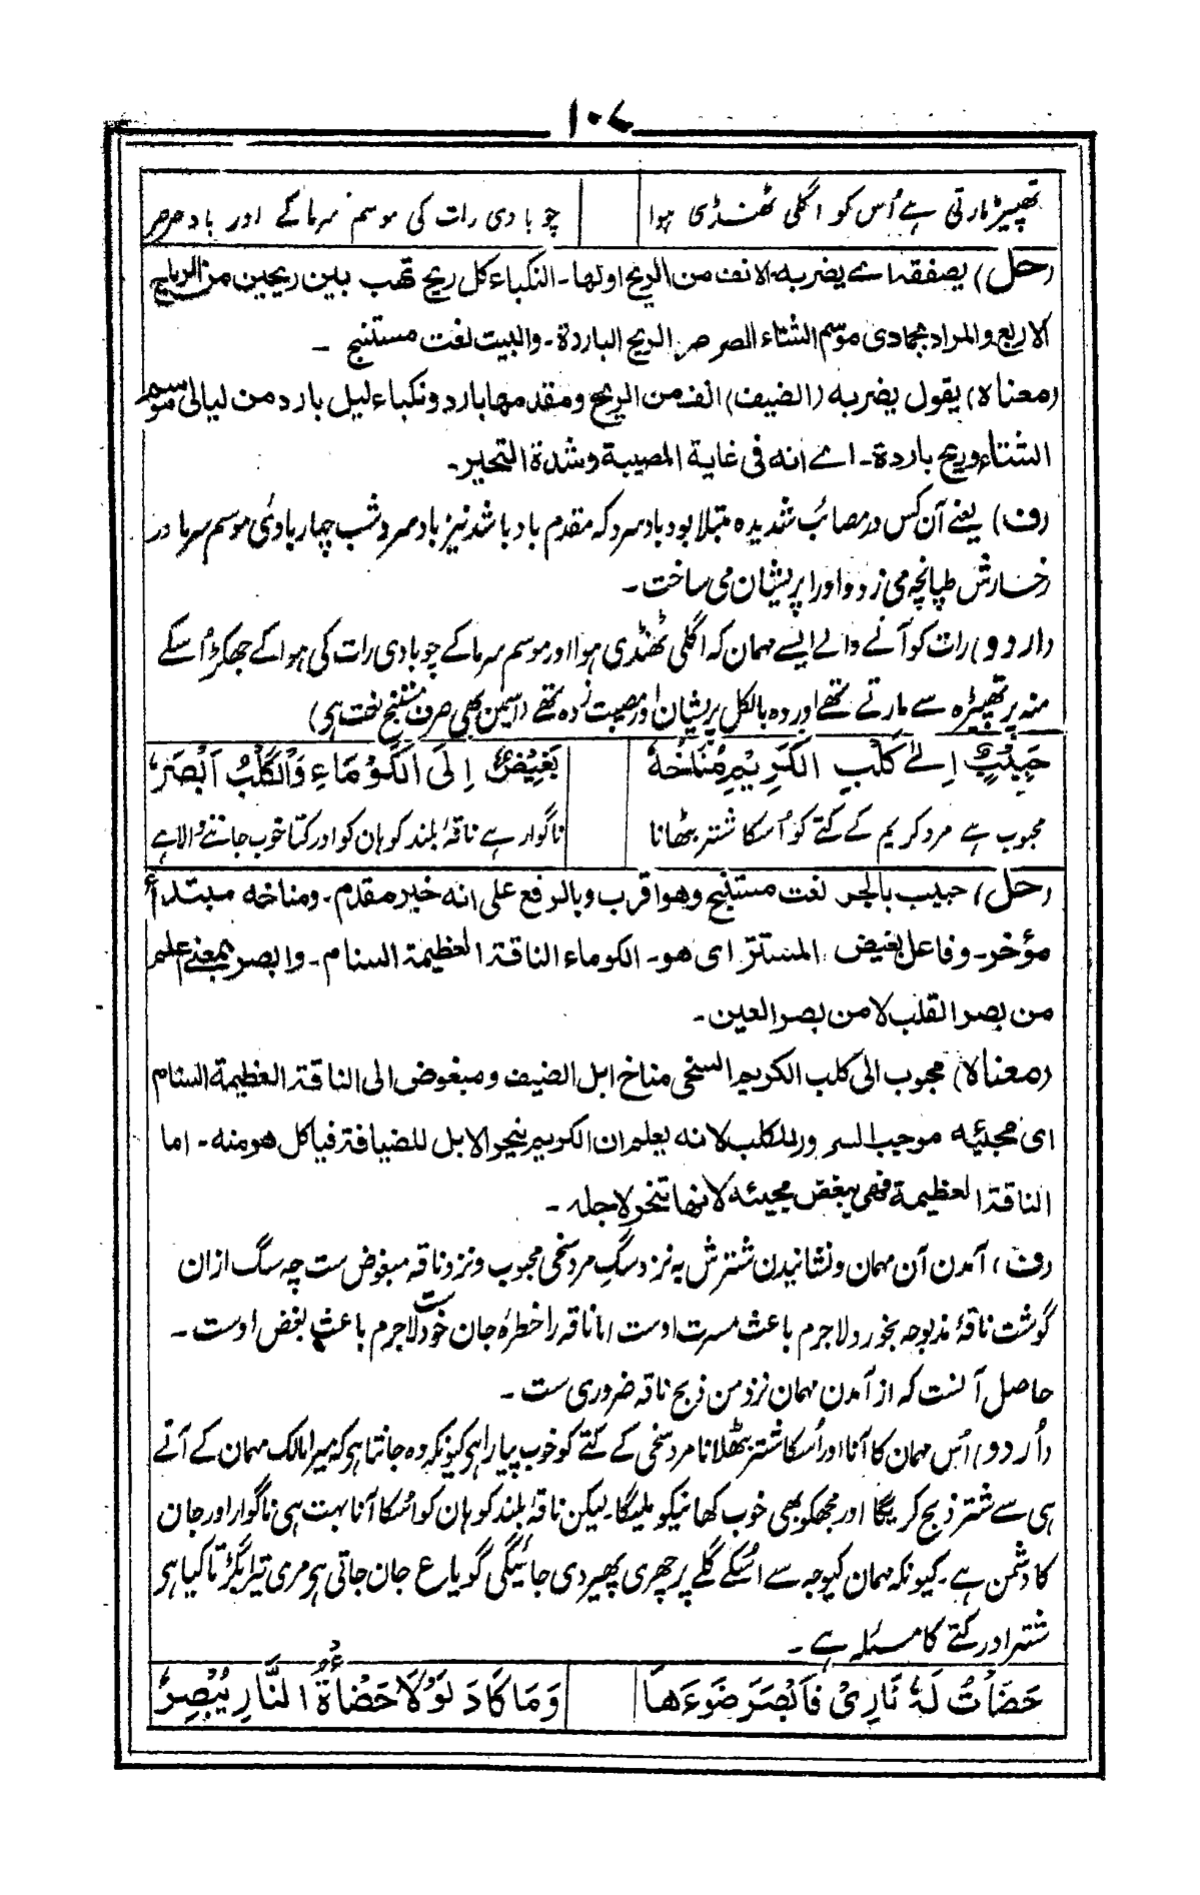 ۱۰۷
تھپیڑ مارتی ہے اُس کو اگلی ٹھنڈی ہوا چوبادی رات کی موسم سرما کے اور باد صرصر
(حل) یصفقہ اے یضربہ الانف من الریح اولہا۔ النکباء کل ریح تھب بین ریحین من الریاح
الاربع والمراد بجمادی موسم الشتاء الصرصر الریح الباردة۔ والبیت لغت مستنبح ۔
(معناہ) یقول یضربہ (الضیف) انف من الریح ومقدمہا بارد ونکباء لیل بارد من لیالی موسم
الشتاء وریح باردة۔ اے انہ فی غایة المصیبة وشدة التحیر۔
(ف) یعنے آن کس در مصائب شدیدہ مبتلا بود باد سرد کہ مقدم باد باشد نیز باد سرد شب چہار بادی موسم سرما در
رخسارش طپانچہ می زد و اورا پریشان می ساخت ۔
(اردو) رات کو آنے والے ایسے مہمان کہ اگلی ٹھنڈی ہوا اور موسم سرما کے چوبادی رات کی ہوا کے جھکڑ اُسکے
منہ پر تھپیڑہ سے مارتے تھے اور وہ بالکل پریشان اور مصیبت زدہ تھے (اسمین بھی صرف مستنبح لغت ہی)
حَبِیْبٌ اِلٰے کَلْبِ الْکَرِیْمِ مُنَاخُہٗ بَغِیْضٌ اِلَی الْکَوْمَاءِ وَالْکَلْبُ اَبْصَرُ
محبوب ہے مرد کریم کے کتے کو اُسکا شتر بٹھانا ناگوار ہے ناقۂ بلند کوہان کو اور کتا خوب جاننے والا ہے
(حل) حبیب بالجر لغت مستنبح وھو اقرب وبالرفع علی انہ خبر مقدم۔ ومناخہ مبتدأ
مؤخر۔ وفاعل بغیض المستتر ای ھو۔ الکوماء الناقة العظیمة السنام۔ وابصر بمعنے اعلم
من بصر القلب لا من بصر العین۔
(معناہ) محبوب الی کلب الکریم السخی مناخ ابل الضیف ومبغوض الی الناقة العظیمة السنام
ای مجیئہ موجب السرور للکلب لانہ یعلم ان الکریم ینحر الابل للضیافة فیاکل ھو منہ۔ اما
الناقة العظیمة فھی یبغض مجیئہ لانھا تنحر لاجلہ ۔
(ف) آمدن آن مہمان و نشانیدن شترش بہ نزد سگ مرد سخی محبوب و نزد ناقہ مبغوض ست چہ سگ از ان
گوشت ناقۂ مذبوحہ بخورد ولاجرم باعث مسرت اوست اما ناقہ را خطرہ جان خود ست لاجرم باعث بغض اوست ۔
حاصل آنست کہ از آمدن مہمان نزد من ذبح ناقہ ضروری ست ۔
(اُردو) اُس مہمان کا آنا اور اُسکا شتر بٹھلانا مرد سخی کے کتے کو خوب پیارا ہی کیونکہ وہ جانتا ہی کہ میرا مالک مہمان کے آتے
ہی سے شتر ذبح کریگا اور مجھکو بھی خوب کھانیکو ملیگا۔ لیکن ناقہ بلند کوہان کو اُسکا آنا بہت ہی ناگوار اور جان
کا دشمن ہے۔ کیونکہ مہمان کیوجہ سے اُسکے گلے پر چھری پھیر دی جائیگی گویا ع جان جاتی ہی مری تیرا بگڑتا کیا ہی
شتر اور کتے کا مسئلہ ہے ۔
حَضَأْتُ لَہٗ نَارِیْ فَاَبْصَرَ ضَوْءَھَا وَمَا کَادَ لَوْلَا حَضْأَةُ النَّارِ یُبْصِرُ